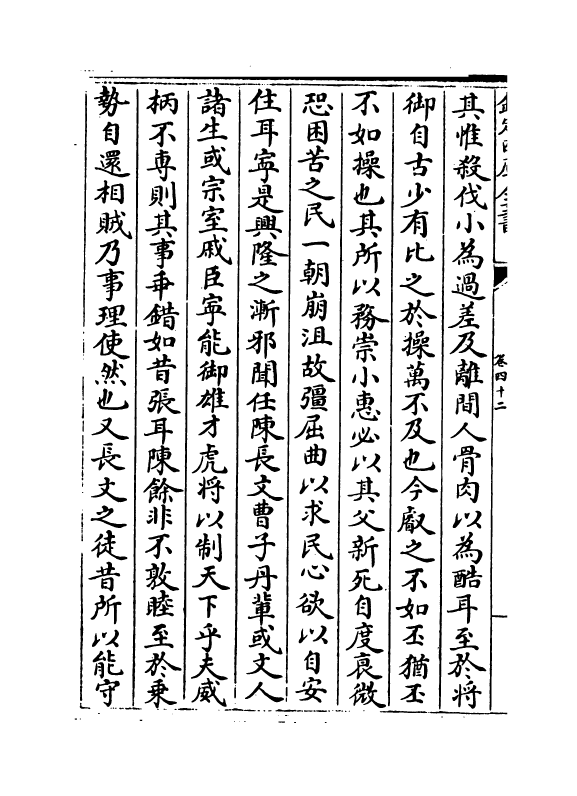 欽定四庫全書
卷四十二
其惟殺伐小為過差及離間人骨肉以為酷耳至於將
御自古少有比之於操萬不及也今叡之不如丕猶丕
不如操也其所以務崇小惠必以其父新死自度衰微
恐困苦之民一朝崩沮故彊屈曲以求民心欲以自安
住耳寧是興隆之漸邪聞任陳長文曹子丹輩或文人
諸生或宗室戚臣寧能御雄才虎將以制天下乎夫威
柄不專則其事乖錯如昔張耳陳餘非不敦睦至於秉
勢自還相賊乃事理使然也又長文之徒昔所以能守